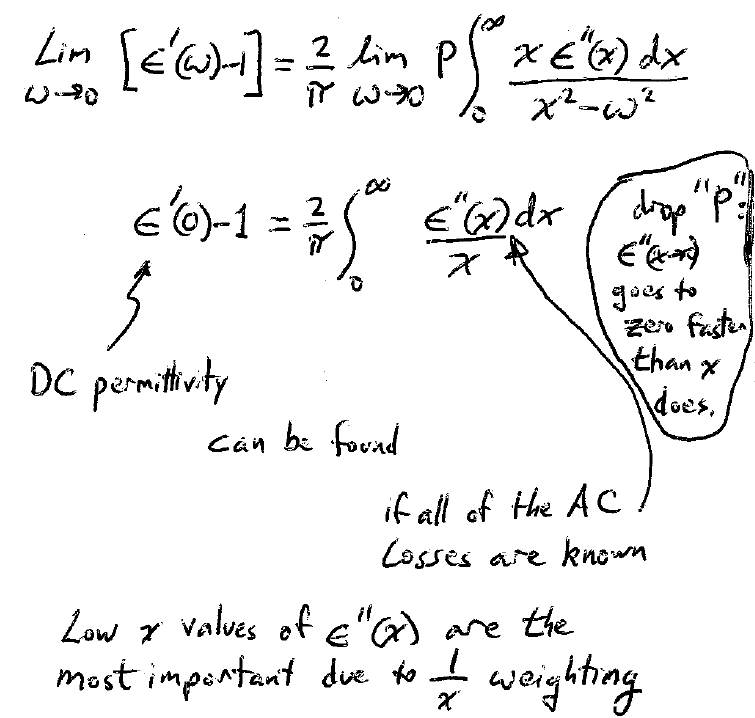 Lim [ϵ'(ω)-1] = 2/π lim P∫₀^∞ x ϵ"(x) dx / x²-ω²
ω→0 ω→0
ϵ'(0)-1 = 2/π ∫₀^∞ ϵ"(x) dx / x
drop "P":
goes to
zero faster
than x
does.
DC permittivity
can be found
if all of the AC
Losses are known
Low x values of ϵ"(x) are the
most important due to 1/x weighting